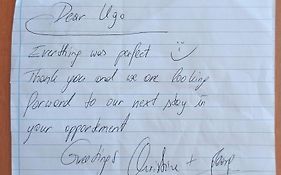 Dear Ugo
Everything was perfect :)
Thank you and we are looking
forward to our next stay in
your appartment
Greetings Christine +